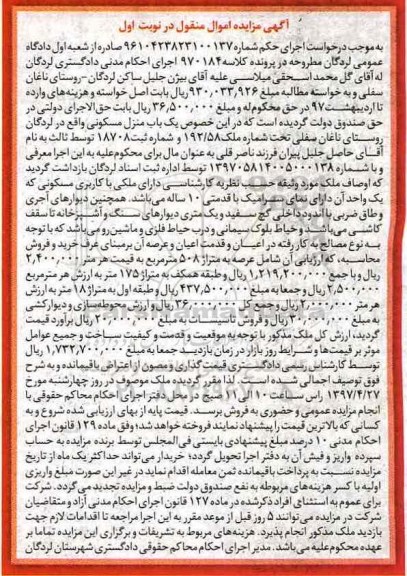 آگهی مزایده اموال منقول در نوبت اول
به موجب درخواست اجرای حکم شماره ۹۶۱۰۴۲۳۸۲۳۱۰۰۱۳۷ صادره از شعبه اول دادگاه
عمومی لردگان مطروحه در پرونده کلاسه ۹۷۰۱۸۴ اجرای احکام مدنی دادگستری لردگان
له آقای گل محمد اسحقی میلاسی علیه آقای بیژن جلیل ساکن لردگان - روستای ناغان
سفلی و به خواسته مطالبه مبلغ ۹۳۰,۰۳۳,۹۲۶ ریال بابت اصل خواسته و هزینه‌های وارده
تا اردیبهشت ۹۷ در حق محکوم‌له و مبلغ ۳۶,۵۰۰,۰۰۰ ریال بابت حق الاجرای دولتی در
حق صندوق دولت گردیده است که در این خصوص یک باب منزل مسکونی واقع در لردگان
روستای ناغان سفلی تحت شماره ملک ۱۹۲/۵۸ و شماره ثبت ۱۸۷۰۸ توسط ثالث به نام
آقای حاصل جلیل پیران فرزند ناصر قلی به عنوان مال برای محکوم‌علیه به این اجرا معرفی
و با شماره ۱۳۹۷۰۵۸۱۴۰۰۵۰۰۰۱۳۸ توسط اداره ثبت اسناد لردگان بازداشت گردید
که اوصاف ملک مورد وثیقه حسب نظریه کارشناسی دارای ملکی با کاربری مسکونی که
یک واحد آن دارای نمای سرامیک با قدمتی ۱۰ ساله می‌باشد. همچنین دیوارهای آجری
و طاق ضربی با اندود داخلی گچ سفید و یک متری دیوارهای سنگ و آشپزخانه تا سقف
کاشی می‌باشد و حیاط بلوک سیمانی و درب حیاط فلزی و ماشین‌رو می‌باشد که با توجه
به نوع مصالح به کار رفته در اعیان و قدمت اعیان و عرصه آن برمبنای عرف خرید و فروش
محاسبه، که ارزیابی آن شامل عرصه به متراژ ۵۰۸ مترمربع به قیمت هر متر ۲,۴۰۰,۰۰۰
ریال و با جمع ۱,۲۱۹,۲۰۰,۰۰۰ ریال و طبقه همکف به متراژ ۱۷۵ متر به ارزش هر مترمربع
۲,۵۰۰,۰۰۰ ریال و جمعا به مبلغ ۴۳۷,۵۰۰,۰۰۰ ریال و طبقه اول به متراژ ۱۸ متر به ارزش
هر متر ۲,۰۰۰,۰۰۰ ریال و جمع کل ۳۶,۰۰۰,۰۰۰ ریال و ارزش محوطه‌سازی و دیوارکشی
به مبلغ ۲۰,۰۰۰,۰۰۰ ریال و فروش تاسیسات به مبلغ ۲۰,۰۰۰,۰۰۰ ریال برآورد قیمت
گردید، ارزش کل ملک مذکور با توجه به موقعیت و قدمت و کیفیت ساخت و جمیع عوامل
موثر بر قیمت‌ها و شرایط روز بازار در زمان بازدید جمعا به مبلغ ۱,۷۳۲,۷۰۰,۰۰۰ ریال
توسط کارشناس رسمی دادگستری قیمت‌گذاری و مصون از اعتراض باقیمانده و به شرح
فوق توصیف اجمالی شده است. لذا مقرر گردیده ملک موصوف در روز چهارشنبه مورخ
۱۳۹۷/۴/۲۷ راس ساعت ۱۰ الی ۱۱ صبح در محل دفتر اجرای احکام محاکم حقوقی با
انجام مزایده عمومی و حضوری به فروش برسد. قیمت پایه از بهای ارزیابی شده شروع و به
کسانی که بالاترین قیمت را پیشنهاد نمایند فروخته خواهد شد؛ وفق ماده ۱۲۹ قانون اجرای
احکام مدنی ۱۰ درصد مبلغ پیشنهادی بایستی فی‌المجلس توسط برنده مزایده به حساب
سپرده واریز و فیش آن به دفتر اجرا تحویل گردد؛ خریدار می‌تواند حداکثر یک ماه از تاریخ
مزایده نسبت به پرداخت باقیمانده ثمن معامله اقدام نماید در غیر این صورت مبلغ واریزی
اولیه با کسر هزینه‌های مربوطه به نفع صندوق دولت ضبط و مزایده تجدید می‌گردد. شرکت
برای عموم به استثنای افراد ذکر شده در ماده ۱۲۷ قانون اجرای احکام مدنی آزاد و متقاضیان
شرکت در مزایده می‌توانند ۵ روز قبل از موعد مقرر به این اجرا مراجعه تا اقدامات لازم جهت
بازدید ملک مذکور انجام پذیرد. هزینه‌های مربوط به تشریفات و برگزاری این مزایده تماما بر
عهده محکوم‌علیه می‌باشد. مدیر اجرای احکام محاکم حقوقی دادگستری شهرستان لردگان